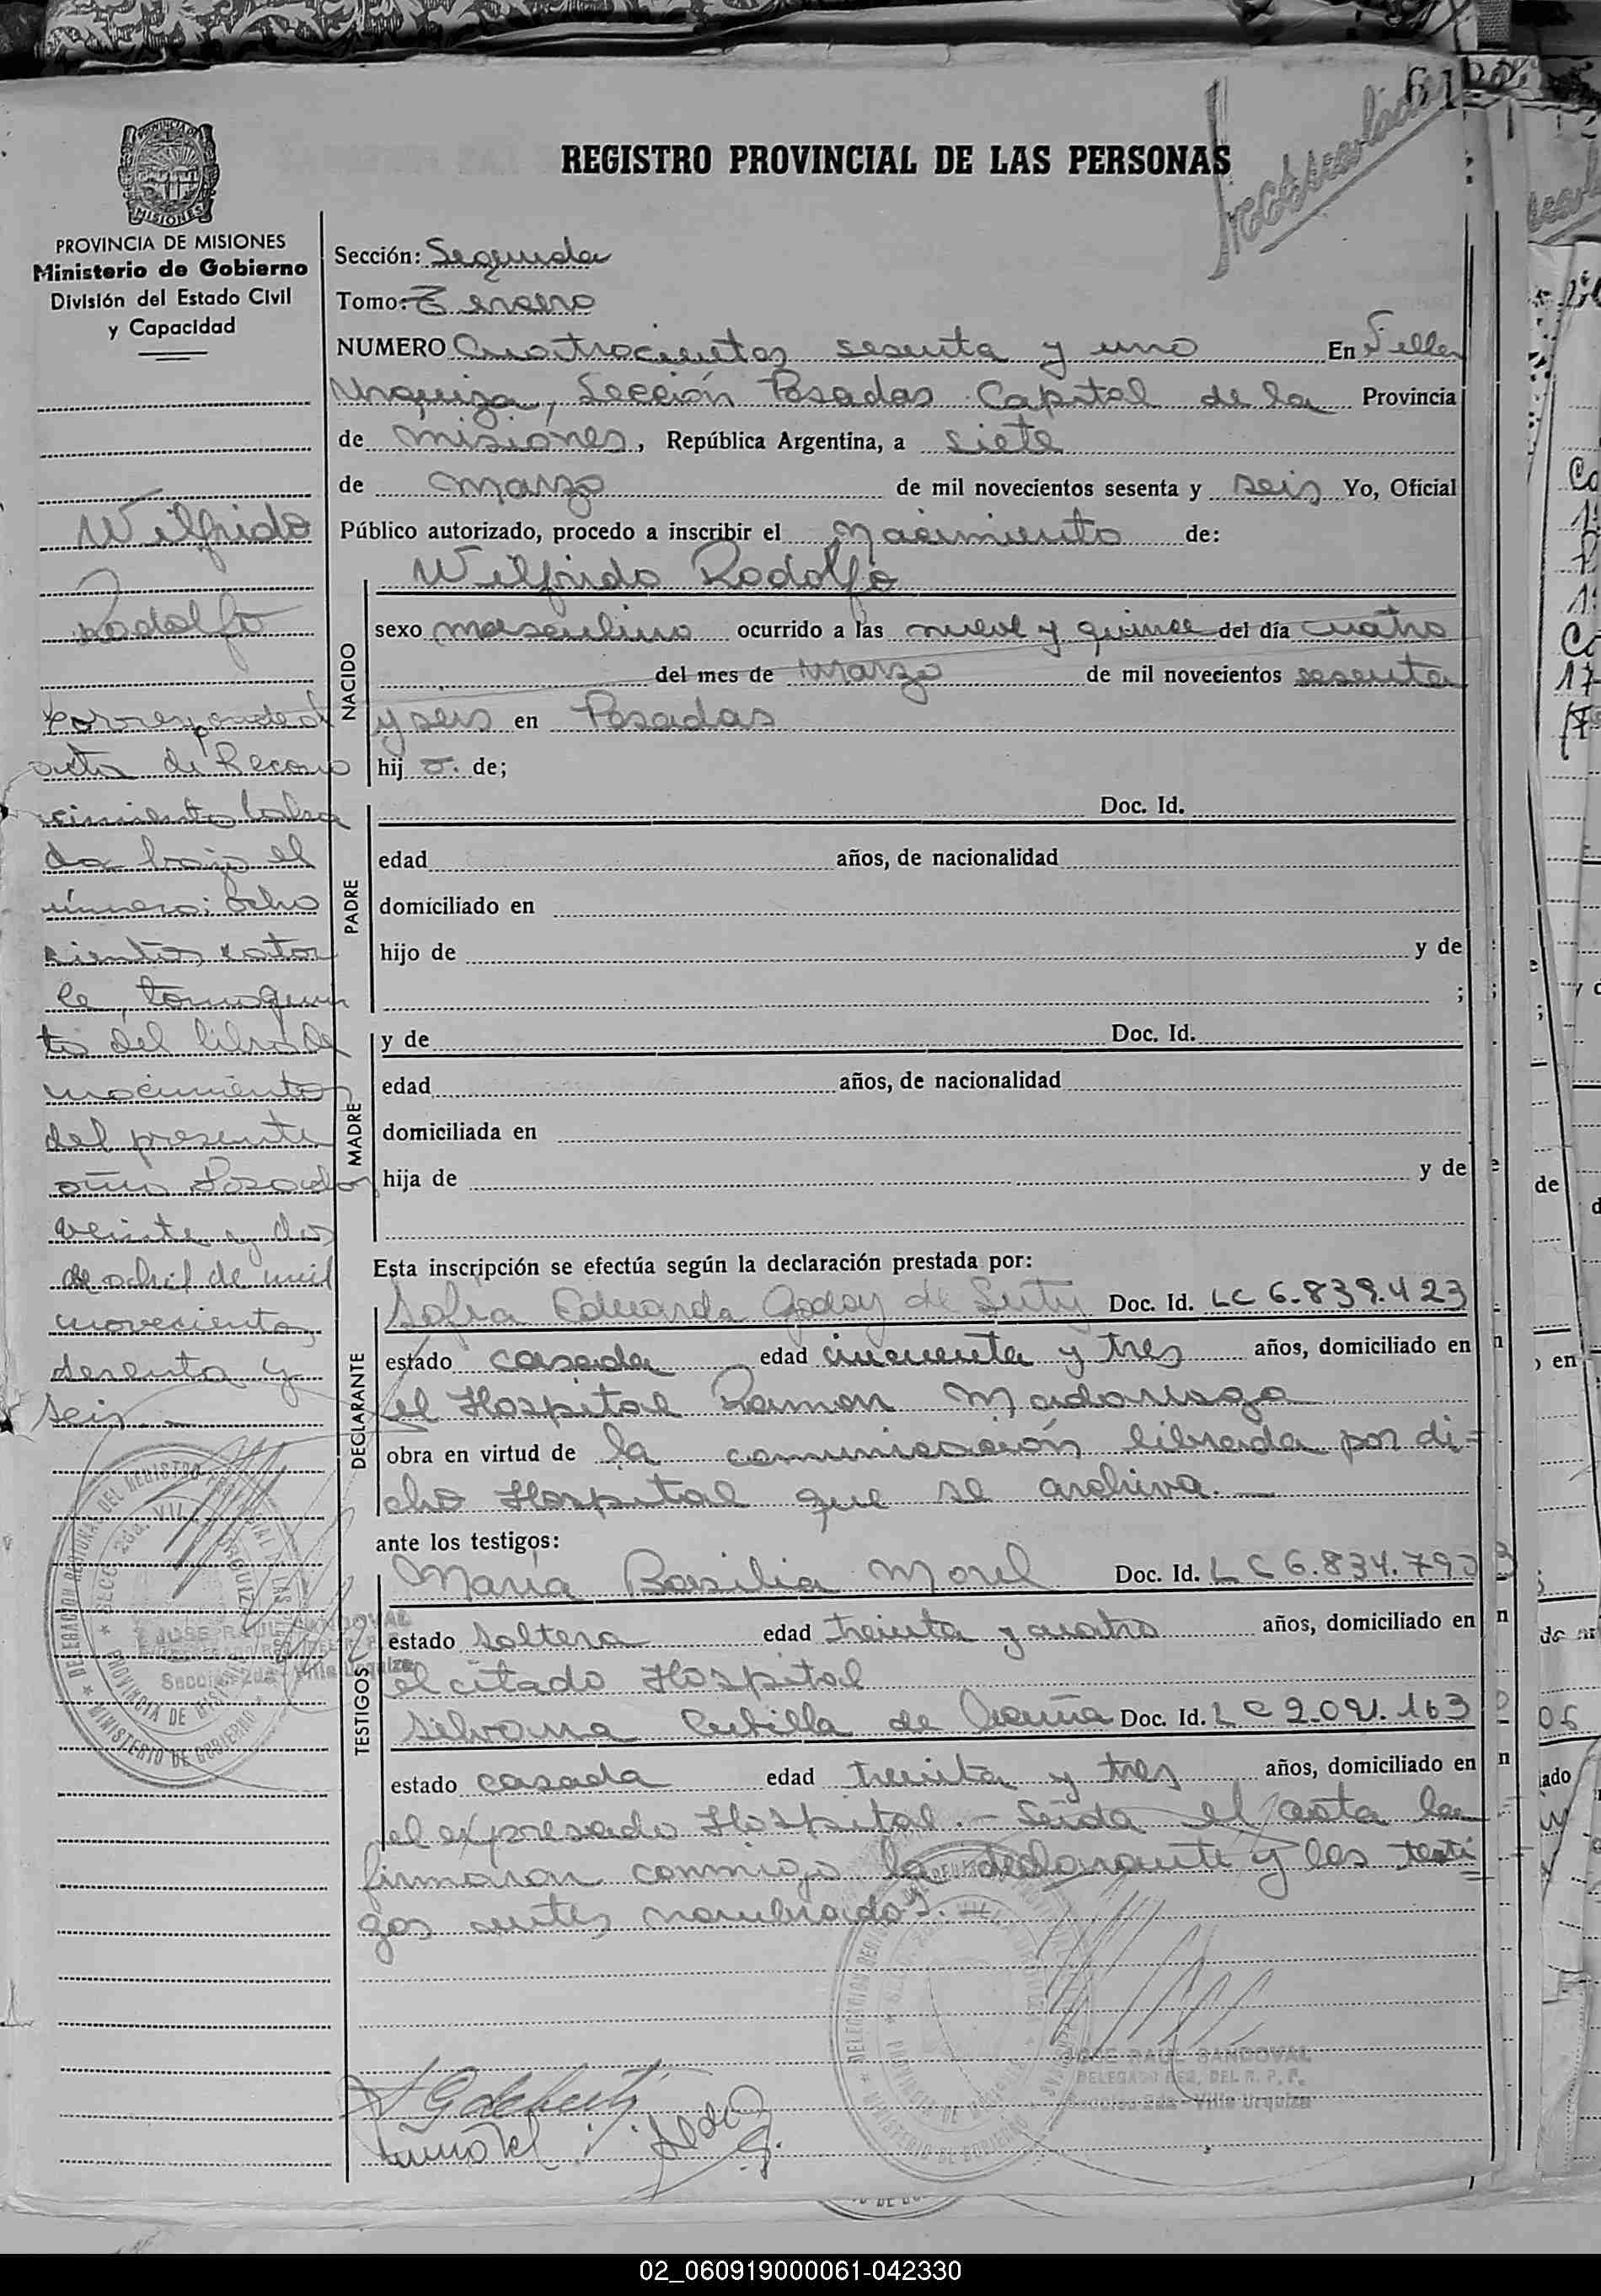 61
Incastulado
REGISTRO PROVINCIAL DE LAS PERSONAS
PROVINCIA DE
MISIONES
PROVINCIA DE MISIONES
Ministerio de Gobierno
División del Estado Civil
y Capacidad
Wilfrido
Rodolfo
Corresponde al
acta de Recono
cimiento labra
da bajo el
número: ocho
cientos cator
ce, tomo quin
to del libro de
nacimientos
del presente
año Posadas
veinte y dos
de abril de mil
novecientos
sesenta y
seis.-
Sección: Segunda
Tomo: Tercero
NUMERO Cuatrocientos sesenta y uno En Villa
Urquiza, Sección Posadas Capital de la Provincia
de Misiones, República Argentina, a siete
de Marzo de mil novecientos sesenta y seis Yo, Oficial
Público autorizado, procedo a inscribir el Nacimiento de:
NACIDO
Wilfrido Rodolfo
sexo masculino ocurrido a las nueve y quince del día cuatro
del mes de Marzo de mil novecientos sesenta
y seis en Posadas
hij o. de;
PADRE
Doc. Id.
edad años, de nacionalidad
domiciliado en
hijo de y de
;
MADRE
y de Doc. Id.
edad años, de nacionalidad
domiciliada en
hija de y de
Esta inscripción se efectúa según la declaración prestada por:
DECLARANTE
Sofia Eduarda Godoy de Doc. Id. LC 6.839.423
estado casada edad cincuenta y tres años, domiciliado en
el Hospital Ramon Madariaga
obra en virtud de la comunicación librada por di=
cho Hospital que se archiva.-
ante los testigos:
TESTIGOS
Maria Basilia Morel Doc. Id. LC 6.834.793
estado soltera edad treinta y cuatro años, domiciliado en
el citado Hospital
Silvana Cubilla de Acuña Doc. Id. LC 2.091.163
estado casada edad treinta y tres años, domiciliado en
el expresado Hospital.- Leída el acta la
firmaron conmigo la declarante y los testi
gos antes nombrados.-
DELEGACION REGIONAL DEL REGISTRO PROVINCIAL DE LAS PERSONAS
SECC. 2da. VILLA URQUIZA
PROVINCIA DE MISIONES
MINISTERIO DE GOBIERNO
JOSE RAUL SANDOVAL
Sección 2da - Villa Urquiza
JOSE RAUL SANDOVAL
DELEGADO REG. DEL R. P. P.
Sección 2da - Villa Urquiza
02_060919000061-042330